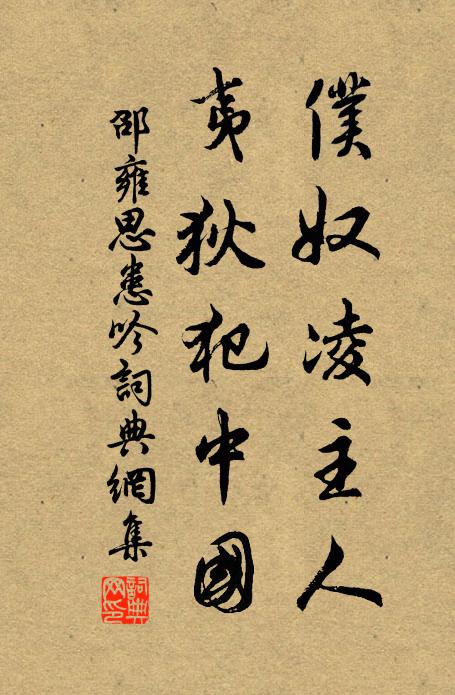 僕奴凌主人
夷狄犯中國
邵雍思患吟詞典網集
詞典网印